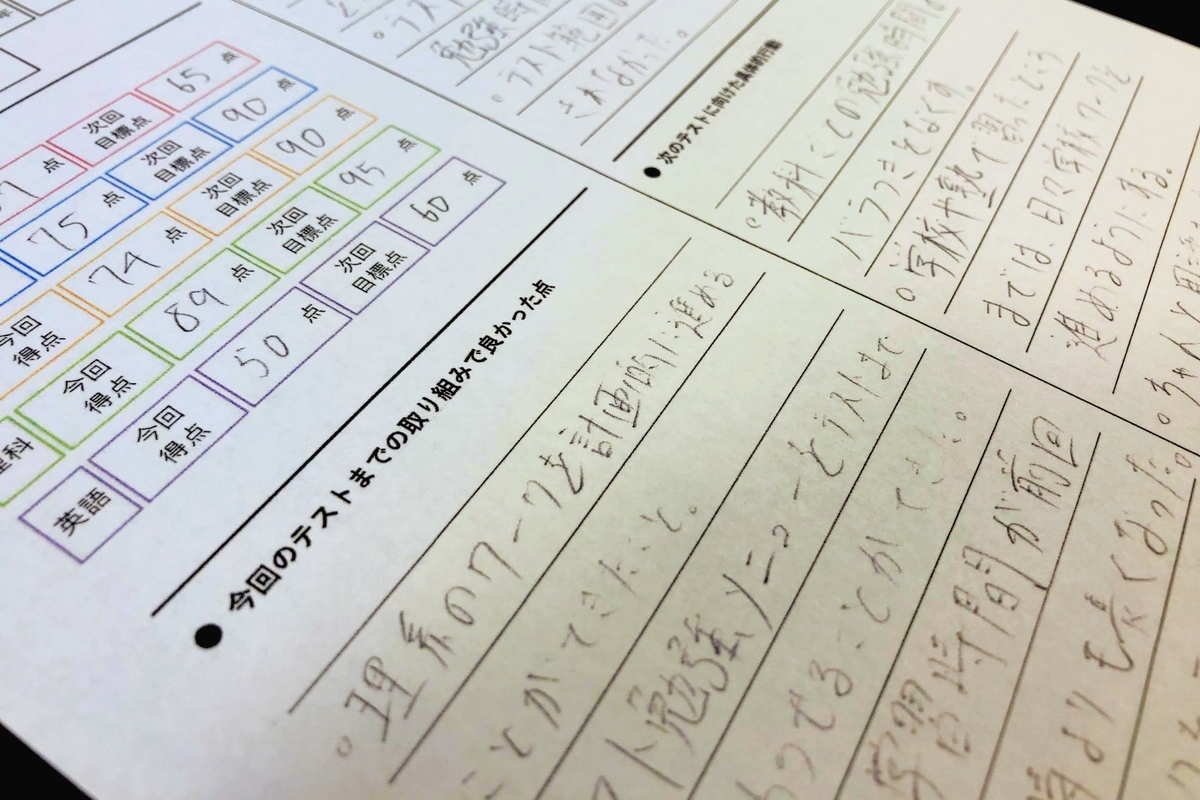 次回目標点 65点
75点 次回目標点 90点
今回得点 74点 次回目標点 90点
今回得点 89点 次回目標点 95点
英語 今回得点 50点 次回目標点 60点
●今回のテストまでの取り組みで良かった点
。理系のワークを計画的に進める
ことができたこと。
スト勉強メニューとテストまで
わせることができた。
学習時間が前回
よりも長くなった。
勉強時間
。テスト範囲
きれなかった。
●次のテストに向けた具体的行動
。教科ごとの勉強時間の
バラつきをなくす。
。学校や塾で習ったところ
までは、日々学校ワークを
進めるようにする。
。ちゃんと